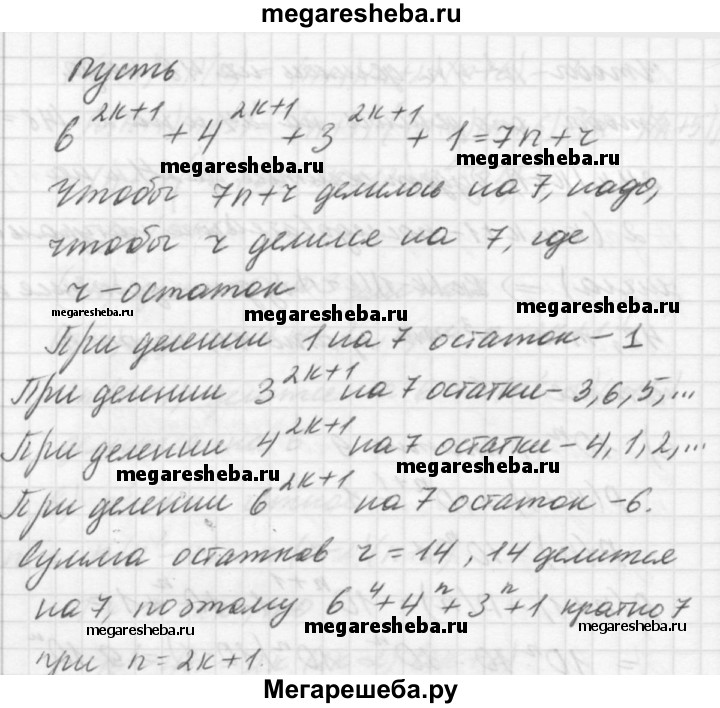 megaresheba.ru
пусть
6^{2k+1} + 4^{2k+1} + 3^{2k+1} + 1 = 7n + r
megaresheba.ru megaresheba.ru
Чтобы 7n+r делилось на 7, надо,
чтобы r делился на 7, где
r - остаток
megaresheba.ru megaresheba.ru megaresheba.ru
При делении 1 на 7 остаток - 1
При делении 3^{2k+1} на 7 остатки - 3, 6, 5, ...
При делении 4^{2k+1} на 7 остатки - 4, 1, 2, ...
megaresheba.ru megaresheba.ru
При делении 6^{2k+1} на 7 остаток - 6.
Сумма остатков r = 14, 14 делится
на 7, поэтому 6^n + 4^n + 3^n + 1 кратно 7
megaresheba.ru megaresheba.ru megaresheba.ru
при n = 2k+1.
Мегарешеба.ру